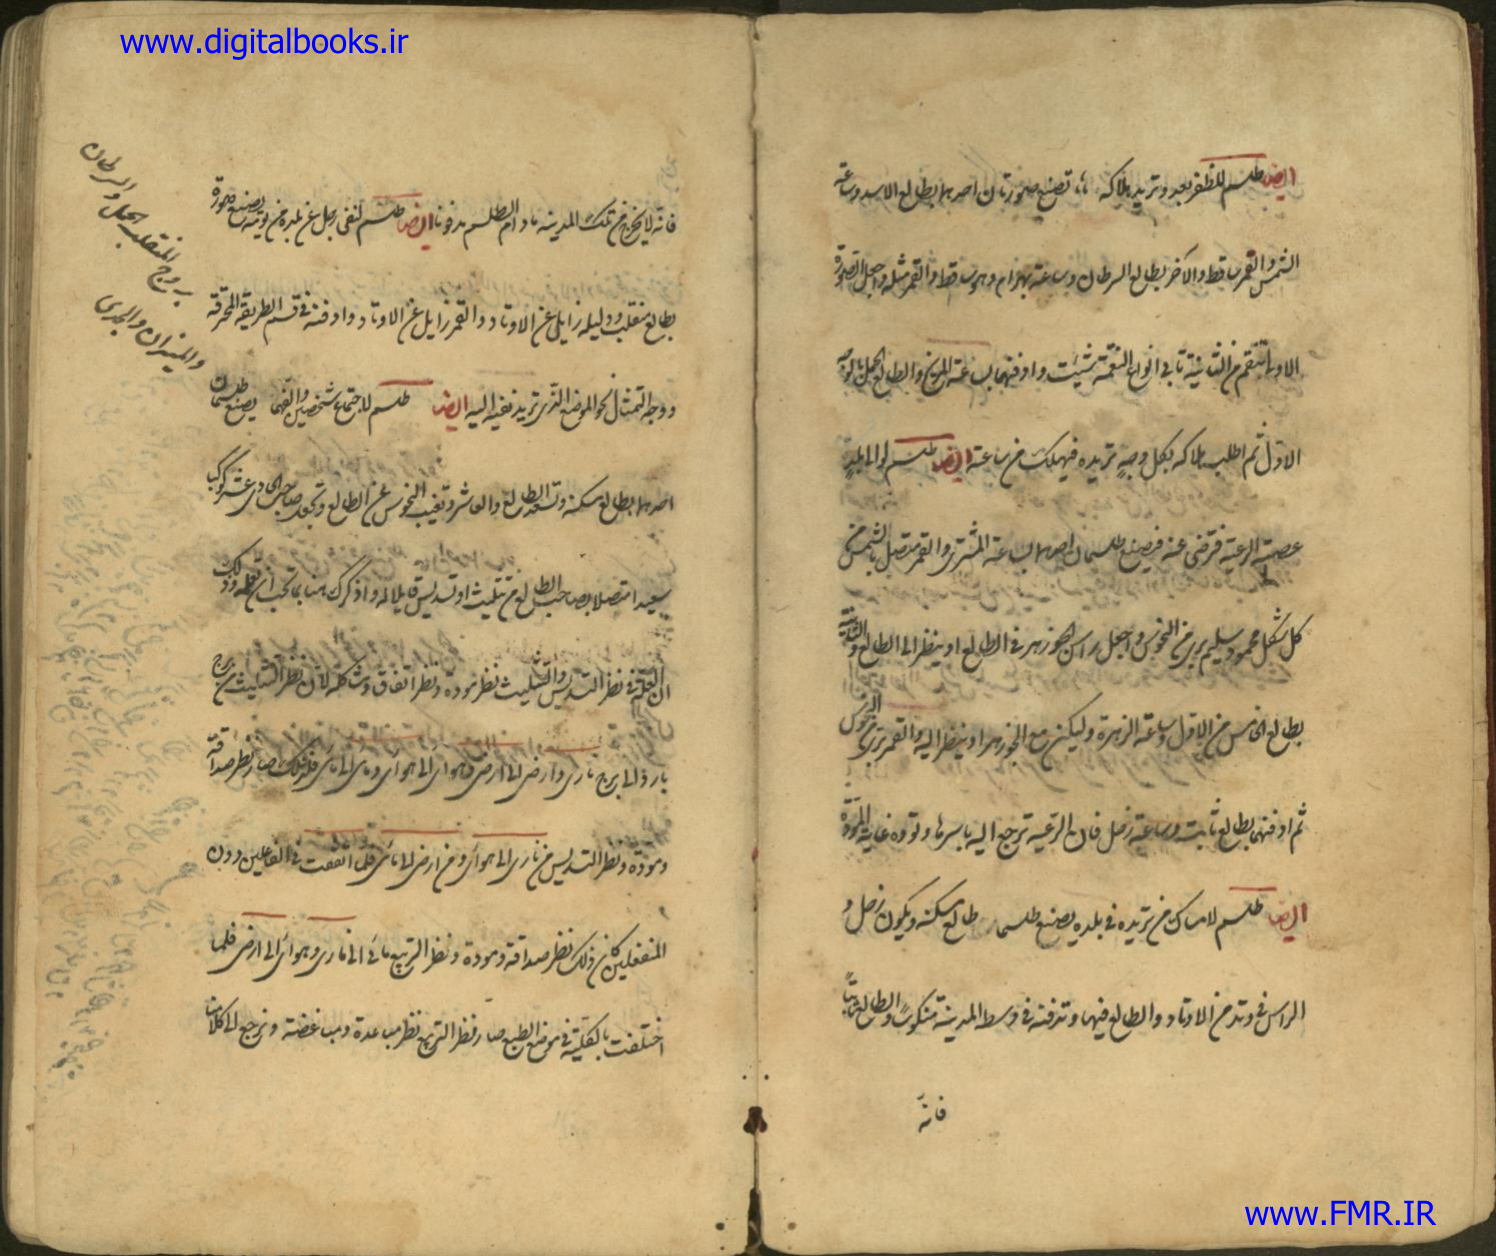 www.digitalbooks.ir
ايضا طلسم للظفر بعدو وتريد هلاكه تصنع صورتان احدهما بطالع الاسد وساعة
الشمس والقمر ساقط والاخر بطالع السرطان وساعة بهرام وهو ساقط والقمر مثله واجعل الصورة
الاولى تنتقم من الثانية تا في انواع النقمة شئت وادفنهما بساعة المريخ والطالع الحمل
الاول ثم اطلب هلاكه بكل وجه تريده فيهلك من ساعته ايضا طلسم لوالى بلد
عصته الرعية فترضى عنه فيصنع طلسمان احدهما بساعة المشترى والقمر متصل بالشمس من
كل شكل محمود سليم برى من النحوس واجعل راس الجوزهر فى الطالع او ينظر الى الطالع والثانية
بطالع الخامس من الاول وساعة الزهرة وليكن مع الجوزهر او ينظر اليه والقمر برى من النحوس
ثم ادفنهما بطالع ثابت وساعة زحل فان الرعية ترجع اليه باسرها وتوده غاية المودة
ايضا طلسم لامساك من تريده فى بلده يصنع طلسم طالع مسكنه ويكون زحل و
الراس فى وتد من الاوتاد والطالع فيها وتدفنه فى وسط المدينة منكوسا والطالع ثابتا
فانه
فانه لا يخرج من تلك المدينة مادام الطلسم مدفونا ايضا طلسم لنفى رجل عن بلده من يومه يصنع صورة
بطالع منقلب ودليله زايل عن الاوتاد والقمر زايل عن الاوتاد وادفنه فى قسم الطريقة المحترقة
ووجه التمثال نحو الموضع الذى تريد نفيه اليه ايضا طلسم لاجتماع شخصين والفهما يصنع طلسمان
احدهما بطالع مسكنه وتسعد الطالع والعاشر وتغيب النحوس عن الطالع وتجعل صاحب الحادى عشر كوكب
سعيدا متصلا بصاحب الطالع من تثليث او تسديس قابلا له واذكرك هنا بما تحب ان تعلمه وذلك
ان العلة فى نظر التسديس والتثليث نظر مودة ونظر اتفاق ومشاكلة لان نظر التثليث من برج
نارى الى برج نارى وارضى الى ارضى وهوائى الى هوائى ومائى الى مائى فلذلك صار نظر صداقة
ومودة ونظر التسديس من نارى الى هوائى ومن ارضى الى مائى فلما اتفقت فى الفاعلين دون
المنفعلين كان ذلك نظر صداقة ومودة ونظر التربيع مائى الى نارى وهوائى الى ارضى فلما
اختلفت بالكلية فى موضع الطبع صار نظر التربيع نظر مباعدة ومباغضة ونرجع الى كلامنا
بروج المنقلب الحمل والسرطان
والميزان والجدى
www.FMR.IR